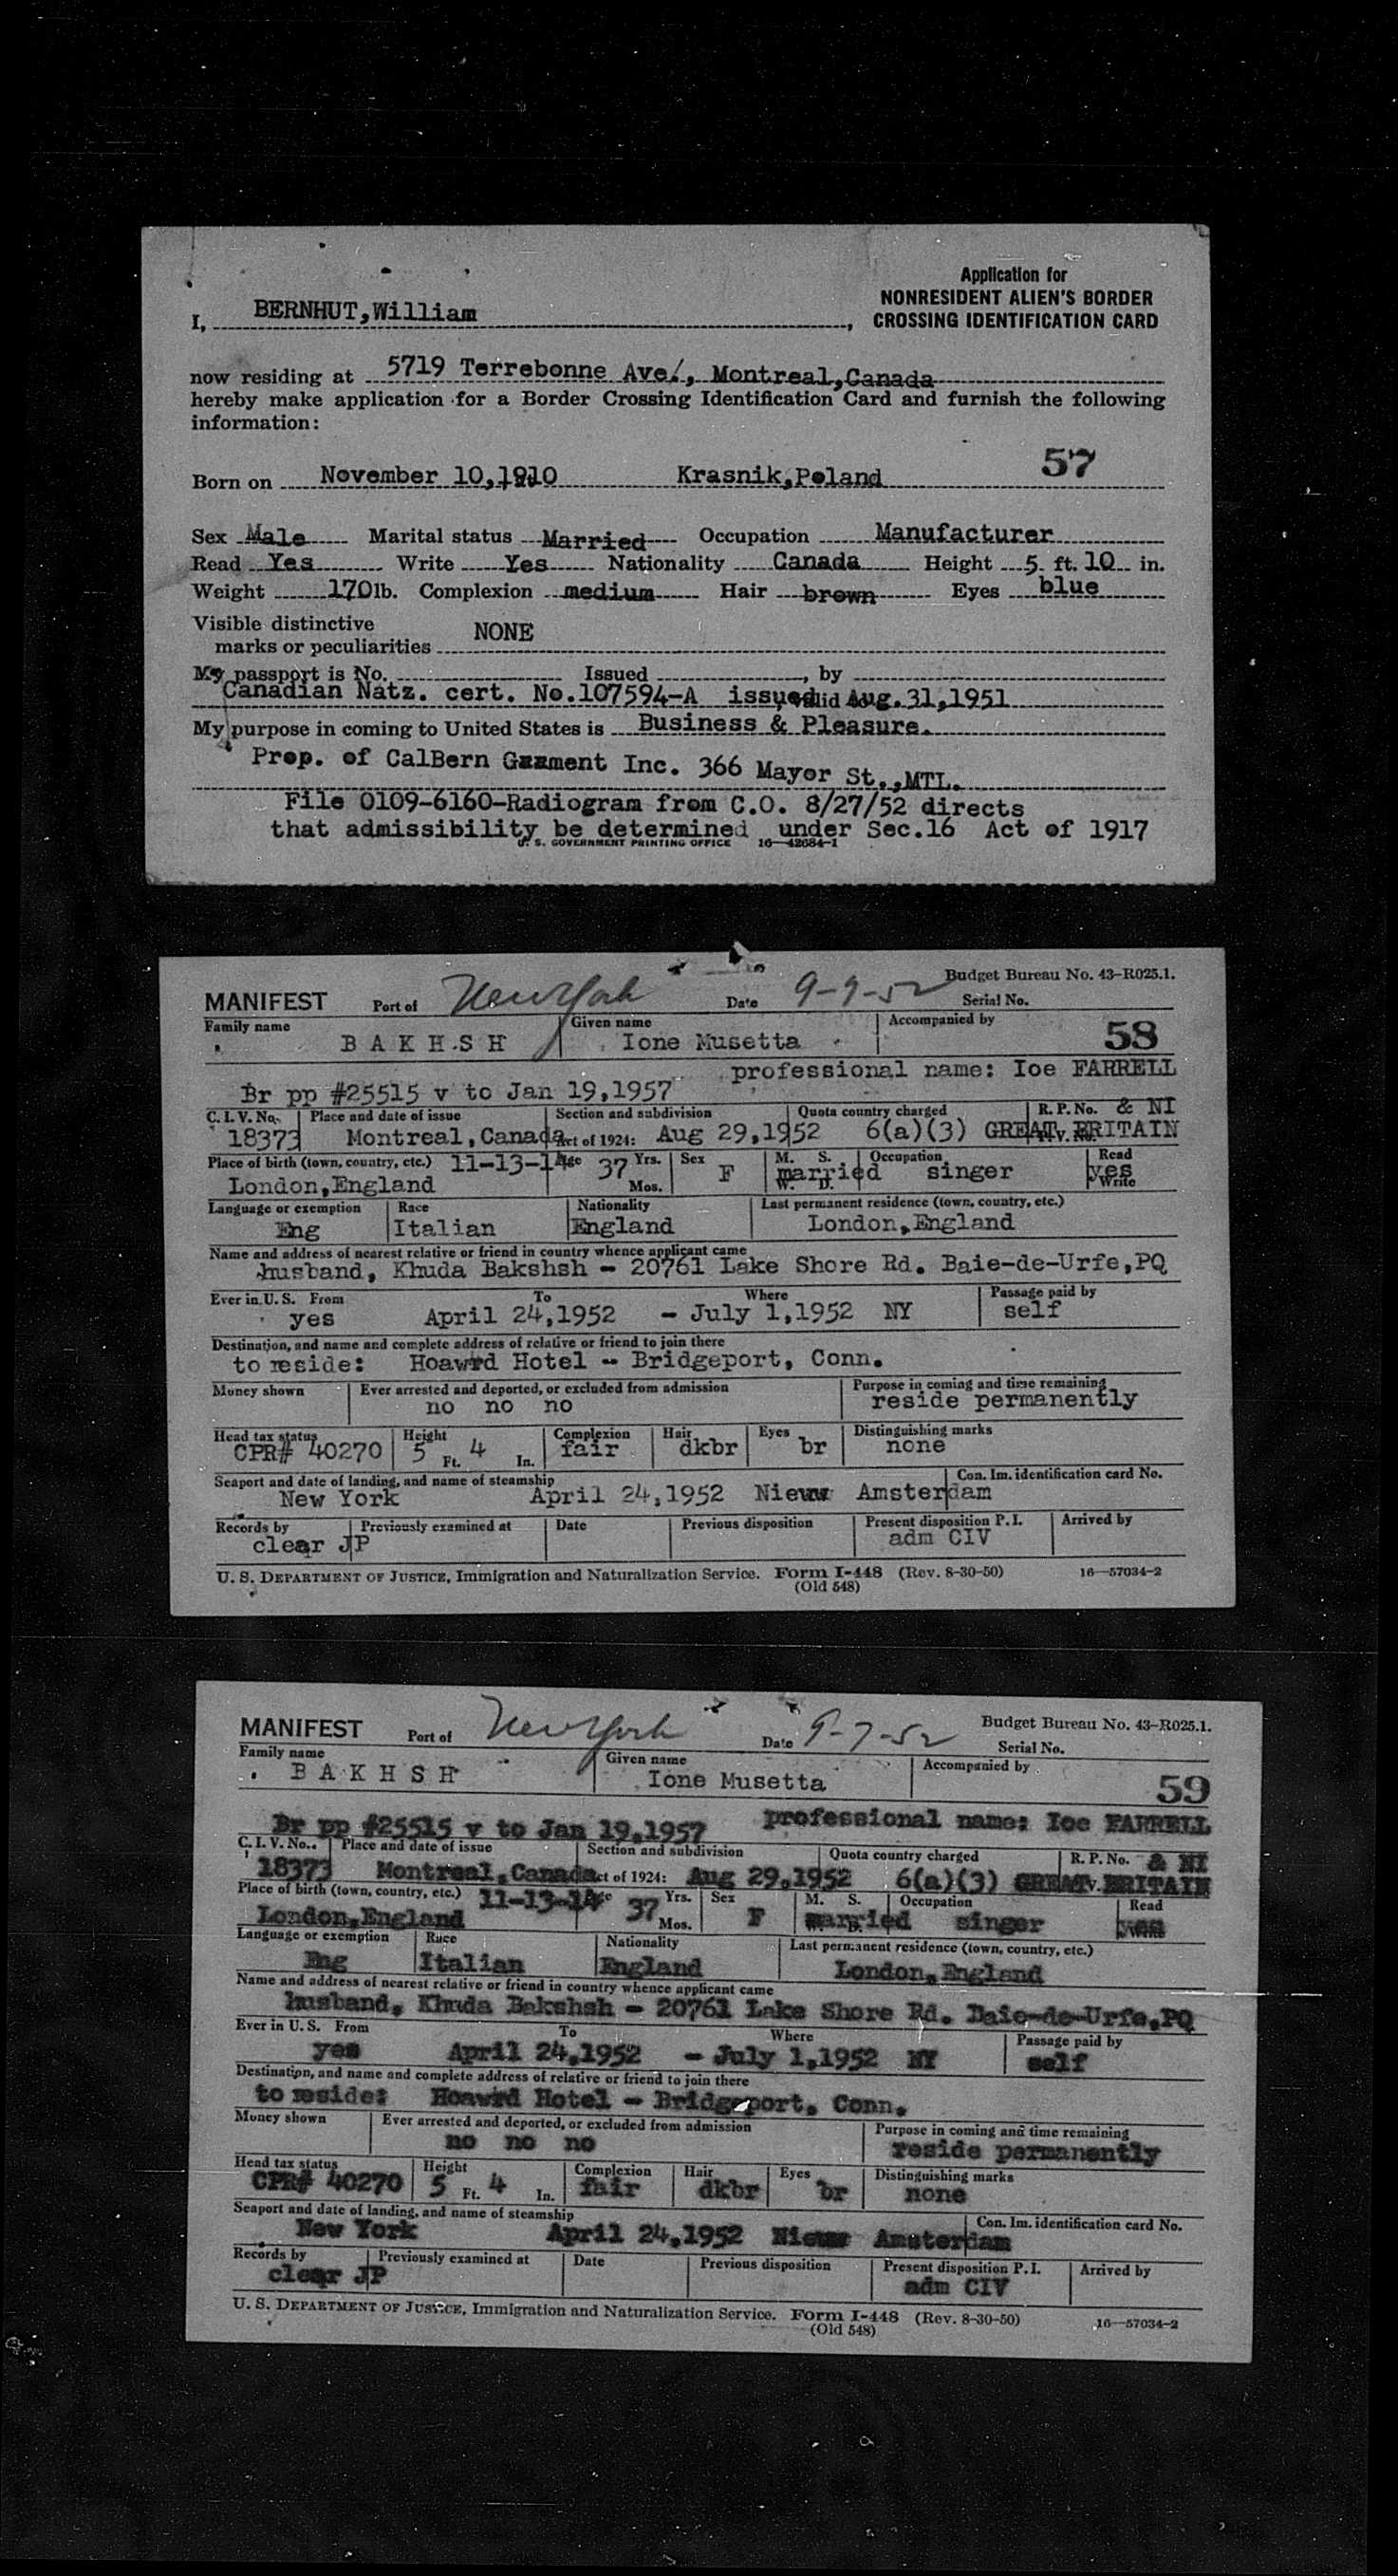 Application for
NONRESIDENT ALIEN'S BORDER
CROSSING IDENTIFICATION CARD
I, BERNHUT,William ,
now residing at 5719 Terrebonne Ave., Montreal,Canada
hereby make application for a Border Crossing Identification Card and furnish the following
information:
Born on November 10,1910 Krasnik,Poland 57
Sex Male Marital status Married Occupation Manufacturer
Read Yes Write Yes Nationality Canada Height 5 ft. 10 in.
Weight 170 lb. Complexion medium Hair brown Eyes blue
Visible distinctive
marks or peculiarities NONE
My passport is No. Issued , by
Canadian Natz. cert. No.107594-A issued Aug.31,1951
My purpose in coming to United States is Business & Pleasure.
Prop. of CalBern Garment Inc. 366 Mayor St.,MTL.
File 0109-6160-Radiogram from C.O. 8/27/52 directs
that admissibility be determined under Sec.16 Act of 1917
U. S. GOVERNMENT PRINTING OFFICE 16—42684-1
Budget Bureau No. 43-R025.1.
MANIFEST Port of New York Date 9-9-52 Serial No.
Family name Given name Accompanied by
BAKHSH Ione Musetta 58
professional name: Ioe FARRELL
Br pp #25515 v to Jan 19,1957
C. I. V. No. Place and date of issue Section and subdivision Quota country charged R. P. No. & NI
18373 Montreal,Canada Act of 1924: Aug 29,1952 6(a)(3) GREAT BRITAIN
Place of birth (town, country, etc.) 11-13-14 Age 37 Yrs. Sex M. S. Occupation Read
London,England Mos. F married W. D. singer yes Write
Language or exemption Race Nationality Last permanent residence (town, country, etc.)
Eng Italian England London,England
Name and address of nearest relative or friend in country whence applicant came
husband, Khuda Bakshsh - 20761 Lake Shore Rd. Baie-de-Urfe,PQ
Ever in U. S. From To Where Passage paid by
yes April 24,1952 - July 1,1952 NY self
Destination, and name and complete address of relative or friend to join there
to reside: Hoawrd Hotel - Bridgeport, Conn.
Money shown Ever arrested and deported, or excluded from admission Purpose in coming and time remaining
no no no reside permanently
Head tax status Height Complexion Hair Eyes Distinguishing marks
CPR# 40270 5 Ft. 4 In. fair dkbr br none
Seaport and date of landing, and name of steamship Con. Im. identification card No.
New York April 24,1952 Nieuw Amsterdam
Records by Previously examined at Date Previous disposition Present disposition P. I. Arrived by
clear JP adm CIV
U. S. DEPARTMENT OF JUSTICE, Immigration and Naturalization Service. Form I-448 (Rev. 8-30-50) 16—57034-2
(Old 548)
Budget Bureau No. 43-R025.1.
MANIFEST Port of New York Date 9-7-52 Serial No.
Family name Given name Accompanied by
BAKHSH Ione Musetta 59
professional name: Ioe FARRELL
Br pp #25515 v to Jan 19,1957
C. I. V. No. Place and date of issue Section and subdivision Quota country charged R. P. No. & NI
18373 Montreal,Canada Act of 1924: Aug 29,1952 6(a)(3) GREAT BRITAIN
Place of birth (town, country, etc.) 11-13-14 Age 37 Yrs. Sex M. S. Occupation Read
London,England Mos. F married singer yes Write
Language or exemption Race Nationality Last permanent residence (town, country, etc.)
Eng Italian England London,England
Name and address of nearest relative or friend in country whence applicant came
husband, Khuda Bakshsh - 20761 Lake Shore Rd. Baie-de-Urfe,PQ
Ever in U. S. From To Where Passage paid by
yes April 24,1952 - July 1,1952 NY self
Destination, and name and complete address of relative or friend to join there
to reside: Hoawrd Hotel - Bridgeport, Conn.
Money shown Ever arrested and deported, or excluded from admission Purpose in coming and time remaining
no no no reside permanently
Head tax status Height Complexion Hair Eyes Distinguishing marks
CPR# 40270 5 Ft. 4 In. fair dkbr br none
Seaport and date of landing, and name of steamship Con. Im. identification card No.
New York April 24,1952 Nieuw Amsterdam
Records by Previously examined at Date Previous disposition Present disposition P. I. Arrived by
clear JP adm CIV
U. S. DEPARTMENT OF JUSTICE, Immigration and Naturalization Service. Form I-448 (Rev. 8-30-50) 16—57034-2
(Old 548)